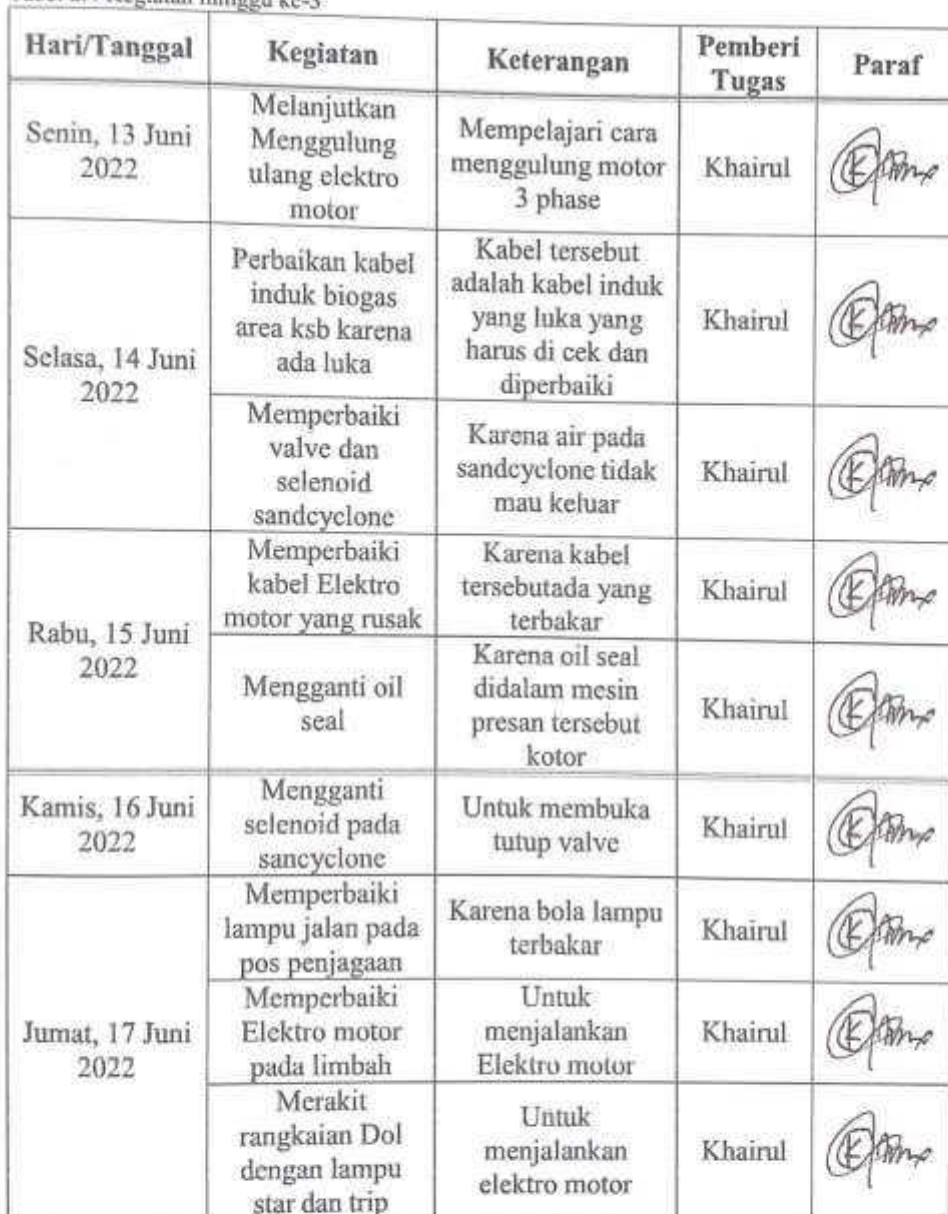 Kegiatan minggu ke-3
Hari/Tanggal
Kegiatan
Keterangan
Pemberi
Tugas
Paraf
Senin, 13 Juni
2022
Melanjutkan
Menggulung
ulang elektro
motor
Mempelajari cara
menggulung motor
3 phase
Khairul
Selasa, 14 Juni
2022
Perbaikan kabel
induk biogas
area ksb karena
ada luka
Kabel tersebut
adalah kabel induk
yang luka yang
harus di cek dan
diperbaiki
Khairul
Memperbaiki
valve dan
selenoid
sandcyclone
Karena air pada
sandcyclone tidak
mau keluar
Khairul
Rabu, 15 Juni
2022
Memperbaiki
kabel Elektro
motor yang rusak
Karena kabel
tersebutada yang
terbakar
Khairul
Mengganti oil
seal
Karena oil seal
didalam mesin
presan tersebut
kotor
Khairul
Kamis, 16 Juni
2022
Mengganti
selenoid pada
sancyclone
Untuk membuka
tutup valve
Khairul
Jumat, 17 Juni
2022
Memperbaiki
lampu jalan pada
pos penjagaan
Karena bola lampu
terbakar
Khairul
Memperbaiki
Elektro motor
pada limbah
Untuk
menjalankan
Elektro motor
Khairul
Merakit
rangkaian Dol
dengan lampu
star dan trip
Untuk
menjalankan
elektro motor
Khairul